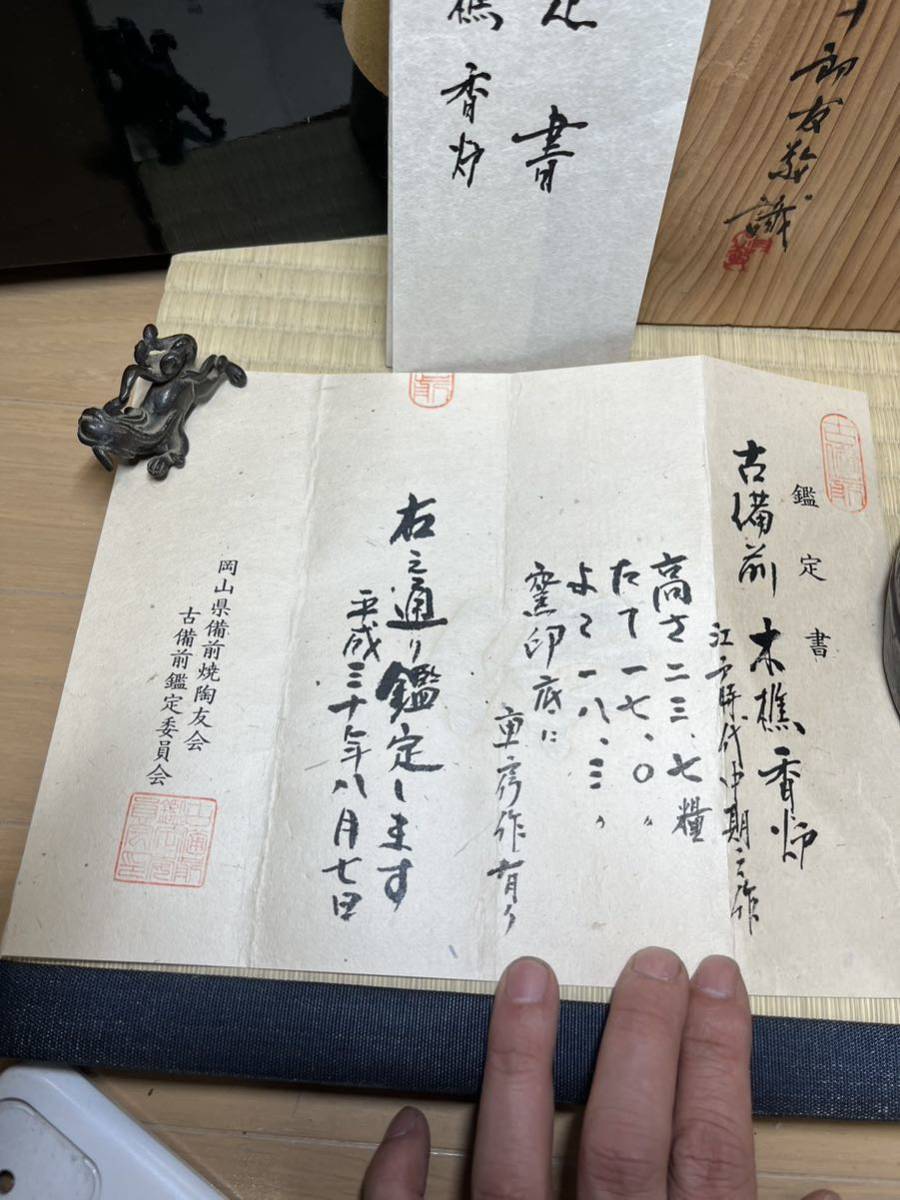 定書
樵香炉
郎友敬識
鑑定書
古備前 木樵香炉
江戸時代中期之作
高さ 二三、七糎
たて 一七、〇〃
よこ 一八、三〃
窯印底に
重房作有り
右之通り鑑定します
平成三十年八月七日
岡山県備前焼陶友会
古備前鑑定委員会
古備前